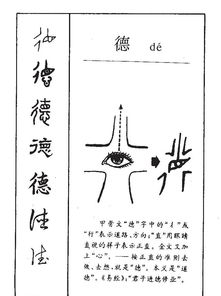 德 dé
甲骨文“德”字中的“彳”或
“行”表示道路、方向；“直”用眼睛
直视的样子表示正直。金文又加
上“心”。——按正直的准则去
做、去想，就是“德”。本义是“道
德”。《易经》：“君子进德修业”。
德
德
德